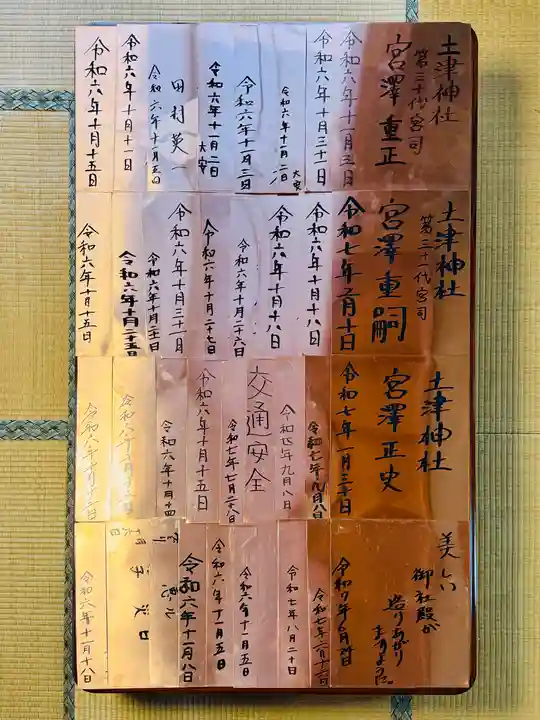 土津神社
第三十代宮司
宮澤重正
令和六年十一月三日
令和六年十月三十一日
令和六年十一月二日
大安
令和六年十一月三日
令和六年十一月二日
大安
田村英一
令和六年十一月三日
令和六年十月十一日
令和六年十月十五日
土津神社
第三十一代宮司
宮澤重嗣
令和六年十月十八日
令和六年十月十八日
令和六年十月二十六日
令和六年十月二十七日
令和六年十月三十一日
令和六年十月二十五日
令和六年十月十五日
土津神社
宮澤正史
令和七年一月三十日
令和七年九月八日
令和七年九月八日
交通安全
令和七年七月二十八日
令和六年十月十五日
令和六年十月十四
美しい
御社殿が
造りあがり
ますように。
令和七年八月二十日
令和六年十一月五日
令和六年十一月五日
令和六年十一月八日
令和六年十一月十八日